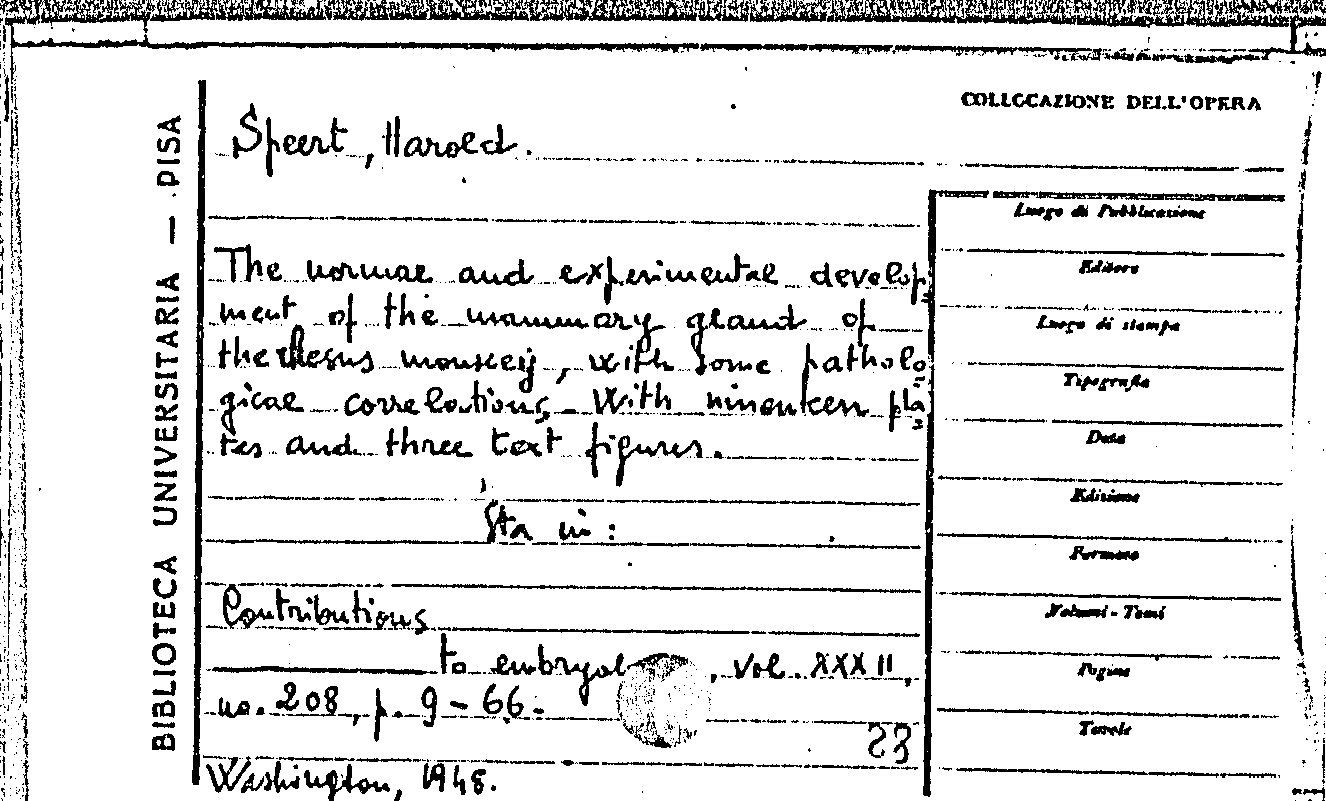 COLLOCAZIONE DELL'OPERA
BIBLIOTECA UNIVERSITARIA — PISA
Speert, Harold.
The normal and experimental develop=
ment of the mammary gland of
the Rhesus monkey, with some patholo=
gical correlations. With nineteen pla=
tes and three text figures.
Sta in:
Contributions
to embryol , vol. XXXII,
no. 208, p. 9-66.
23
Washington, 1948.
Luogo di Pubblicazione
Editore
Luogo di stampa
Tipografia
Data
Edizione
Formato
Volumi - Tomi
Pagine
Tavole